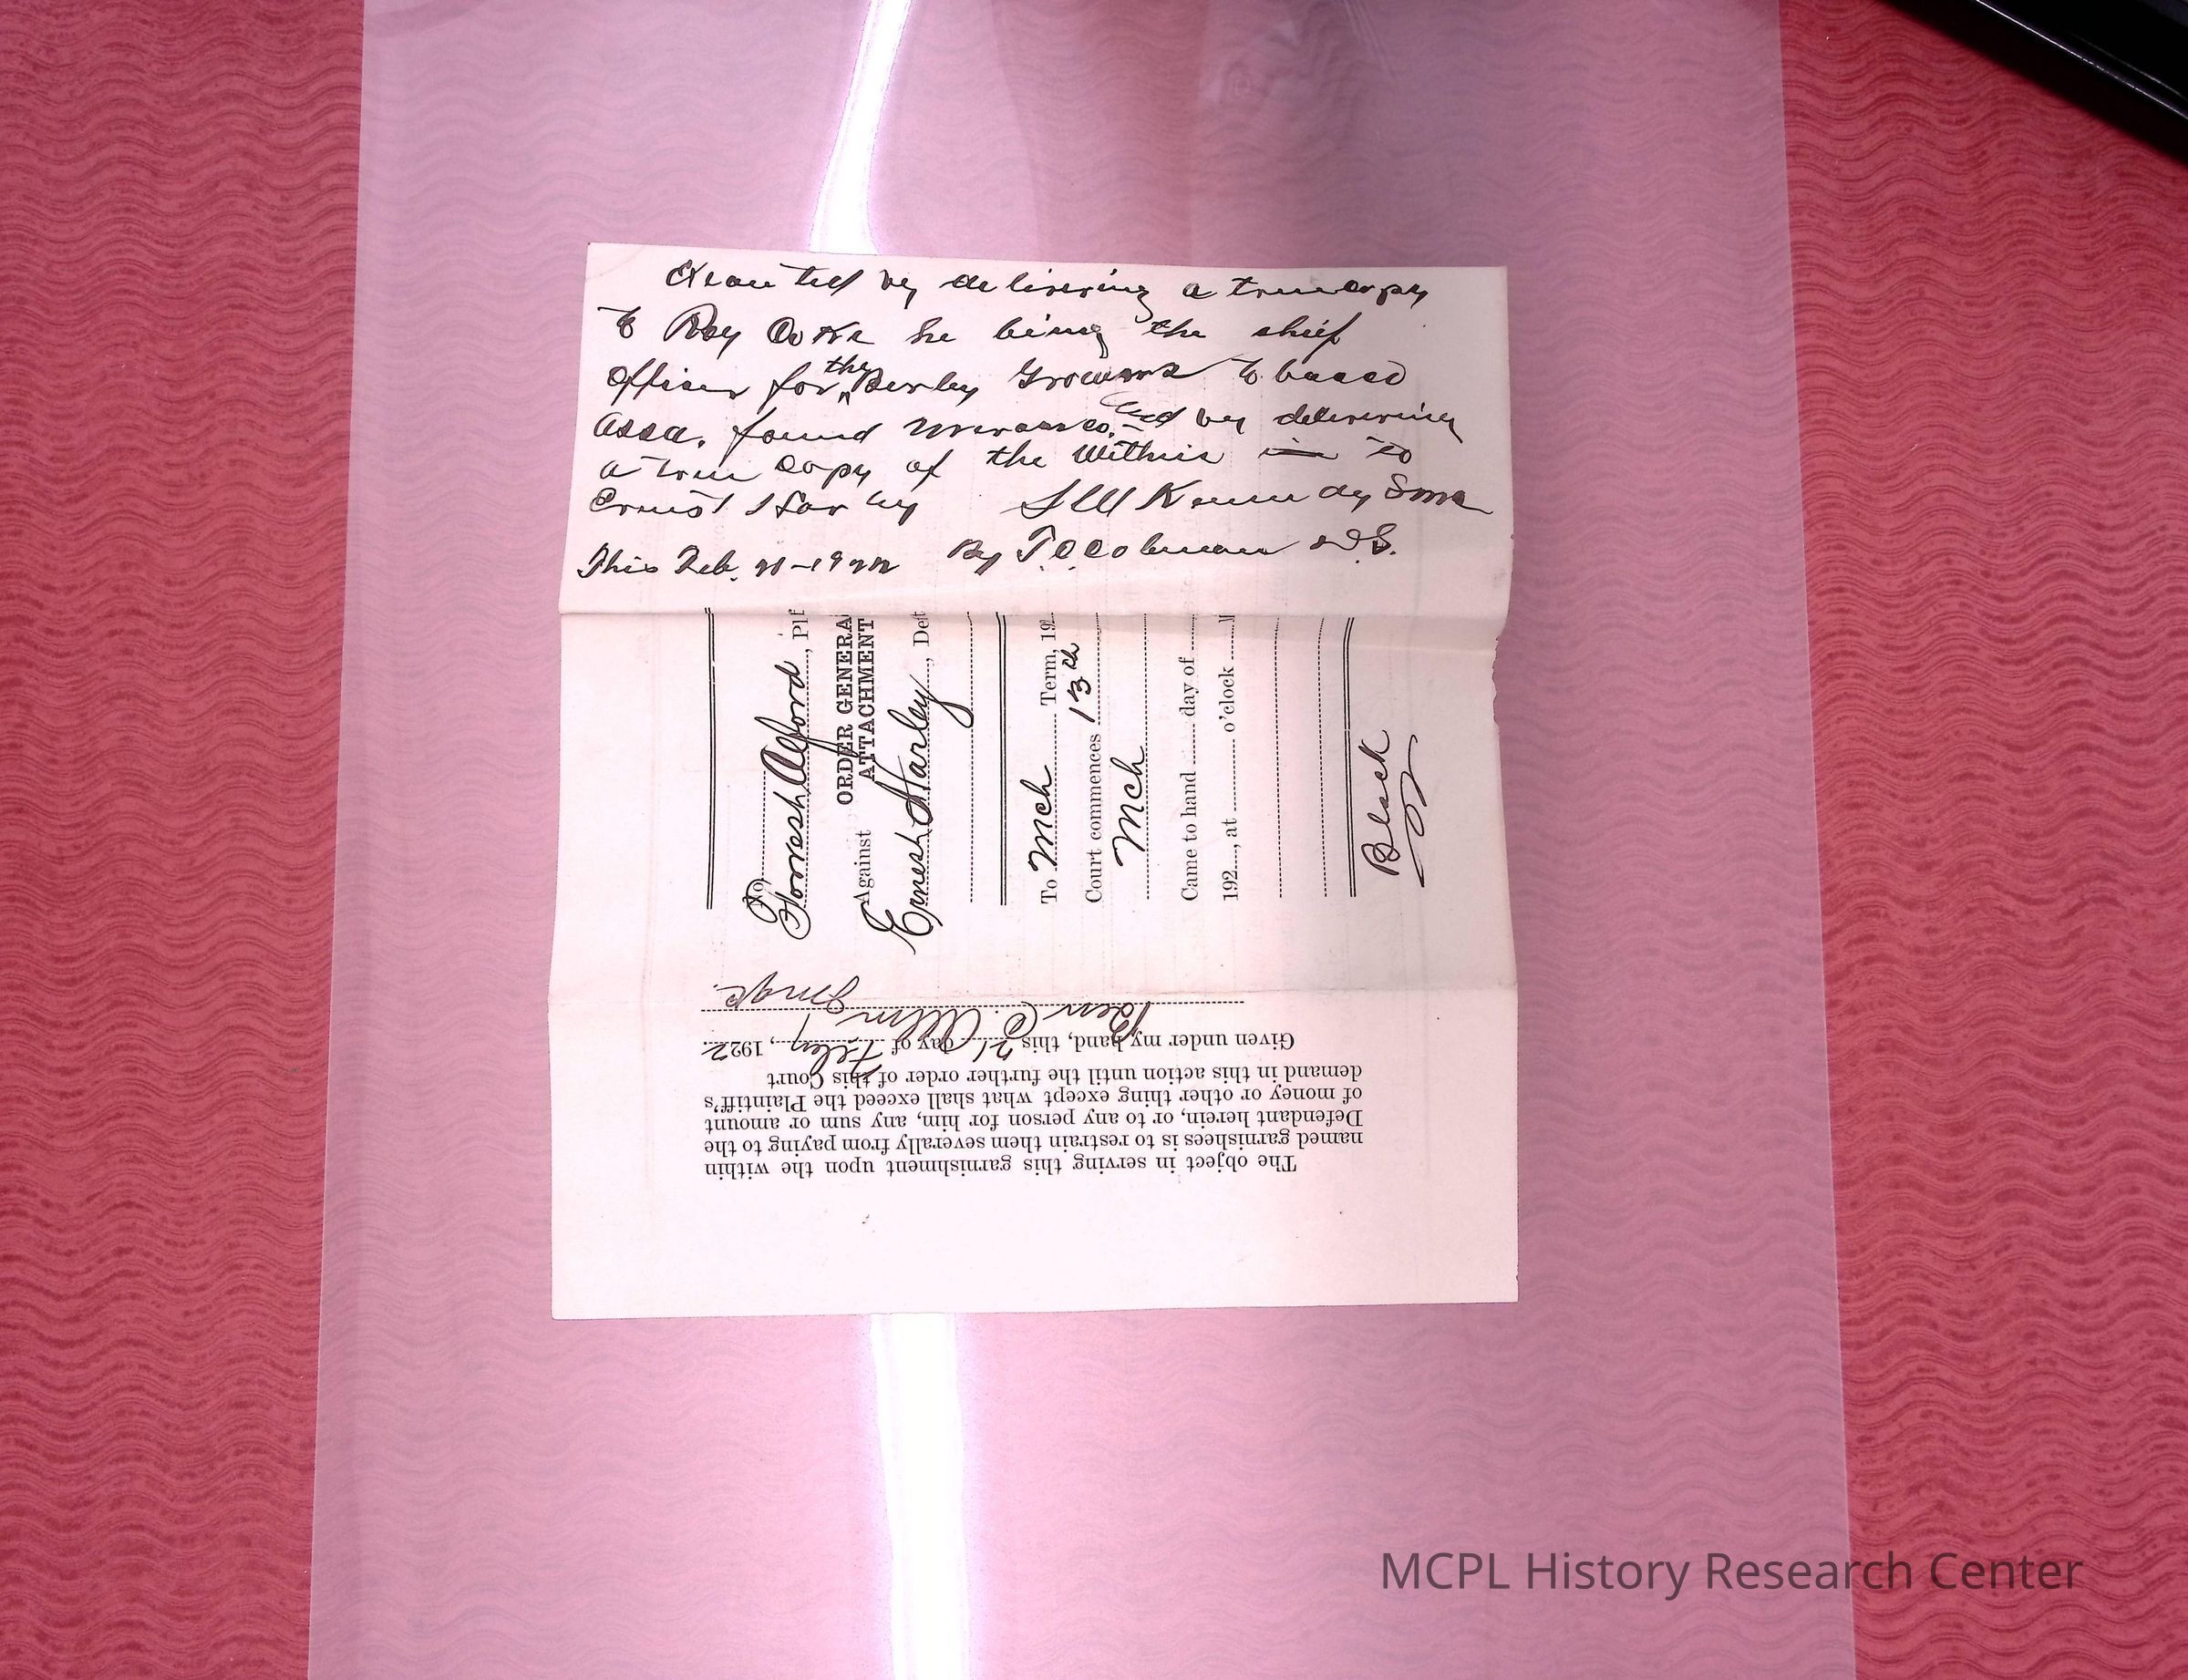 Executed by delivering a true copy
to Roy Cooke he being the chief
officer for the Burley Growers Tobacco
Assa. found Mercer co. and by delivering
a true copy of the within in to
Ernest Harley S W Kennedy Smc
This Feb. 21-1922 By T. C. Coleman D.S.
No.
Forresh Alford, Plf
ORDER GENERA
Against ATTACHMENT
Ernesh Harley, Def
To Mch Term, 192
Court commences 13th
Mch
Came to hand day of
192, at o'clock
Black
The object in serving this garnishment upon the within
named garnishees is to restrain them severally from paying to the
Defendant herein, or to any person for him, any sum or amount
of money or other thing except what shall exceed the Plaintiff's
demand in this action until the further order of this Court
Given under my hand, this 21 day of Feby, 1922
Ben C. Allin
Judge.
MCPL History Research Center